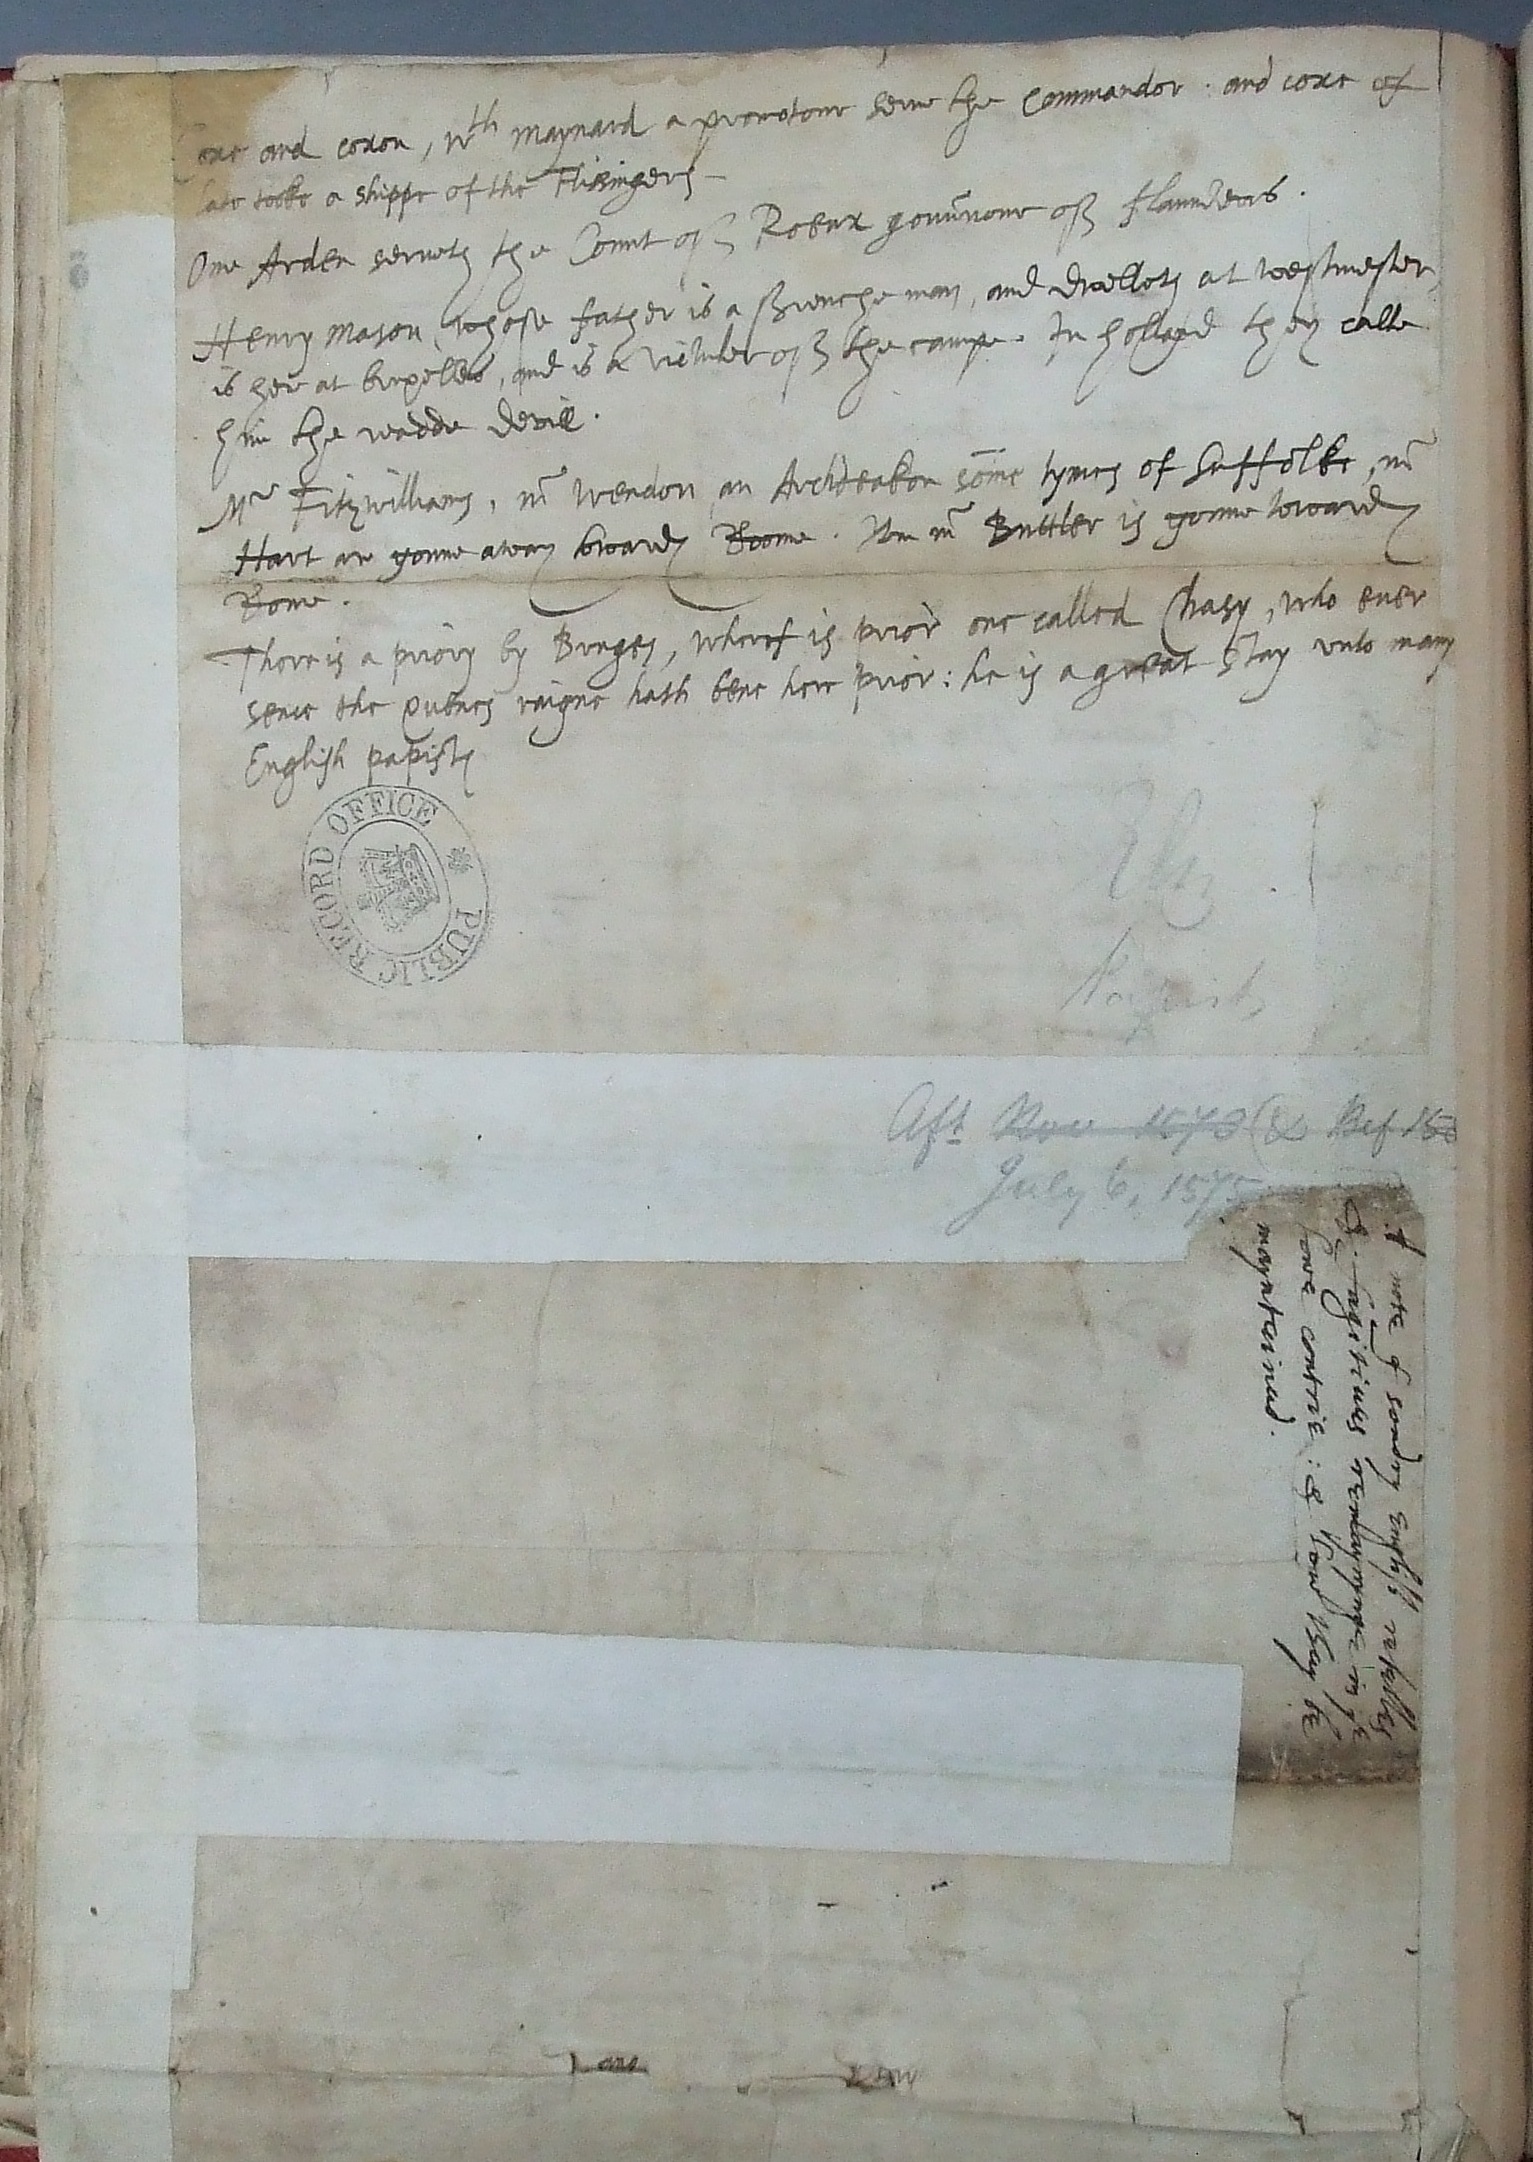 Coxe and coxon, wth Maynard a promotour serue the Commandor . and coxe of
late tooke a shippe of the Flissingers
One Arden serueth the Count of Roeux gouernour of flaunders .
Henry Mason whose father is a ffrenche man, and dwelleth at westmester,
is here at bruxelles, and is a victuler of the campe . In holland they calle
him the madde devill .
Mr Fitzwilliams, mr Wendon an Archdeakon some tymes of Suffolke, mr
Hart are gonne away towards Roome . Itm mr Buttler is gonne towards
Rome .
There is a priory by Bruges, wherof is prior one called Chasy, who euer
sence the quenes raigne hath bene here prior : he is a great stay vnto many
English papists
PUBLIC RECORD OFFICE
Eliz
Papists
Aft Nov 1573 (& Bef 15
July 6, 1575
A note of sondry English rebelles
& fugitiues remayninge in ye
lowe contrie : & how they be
mayntained .